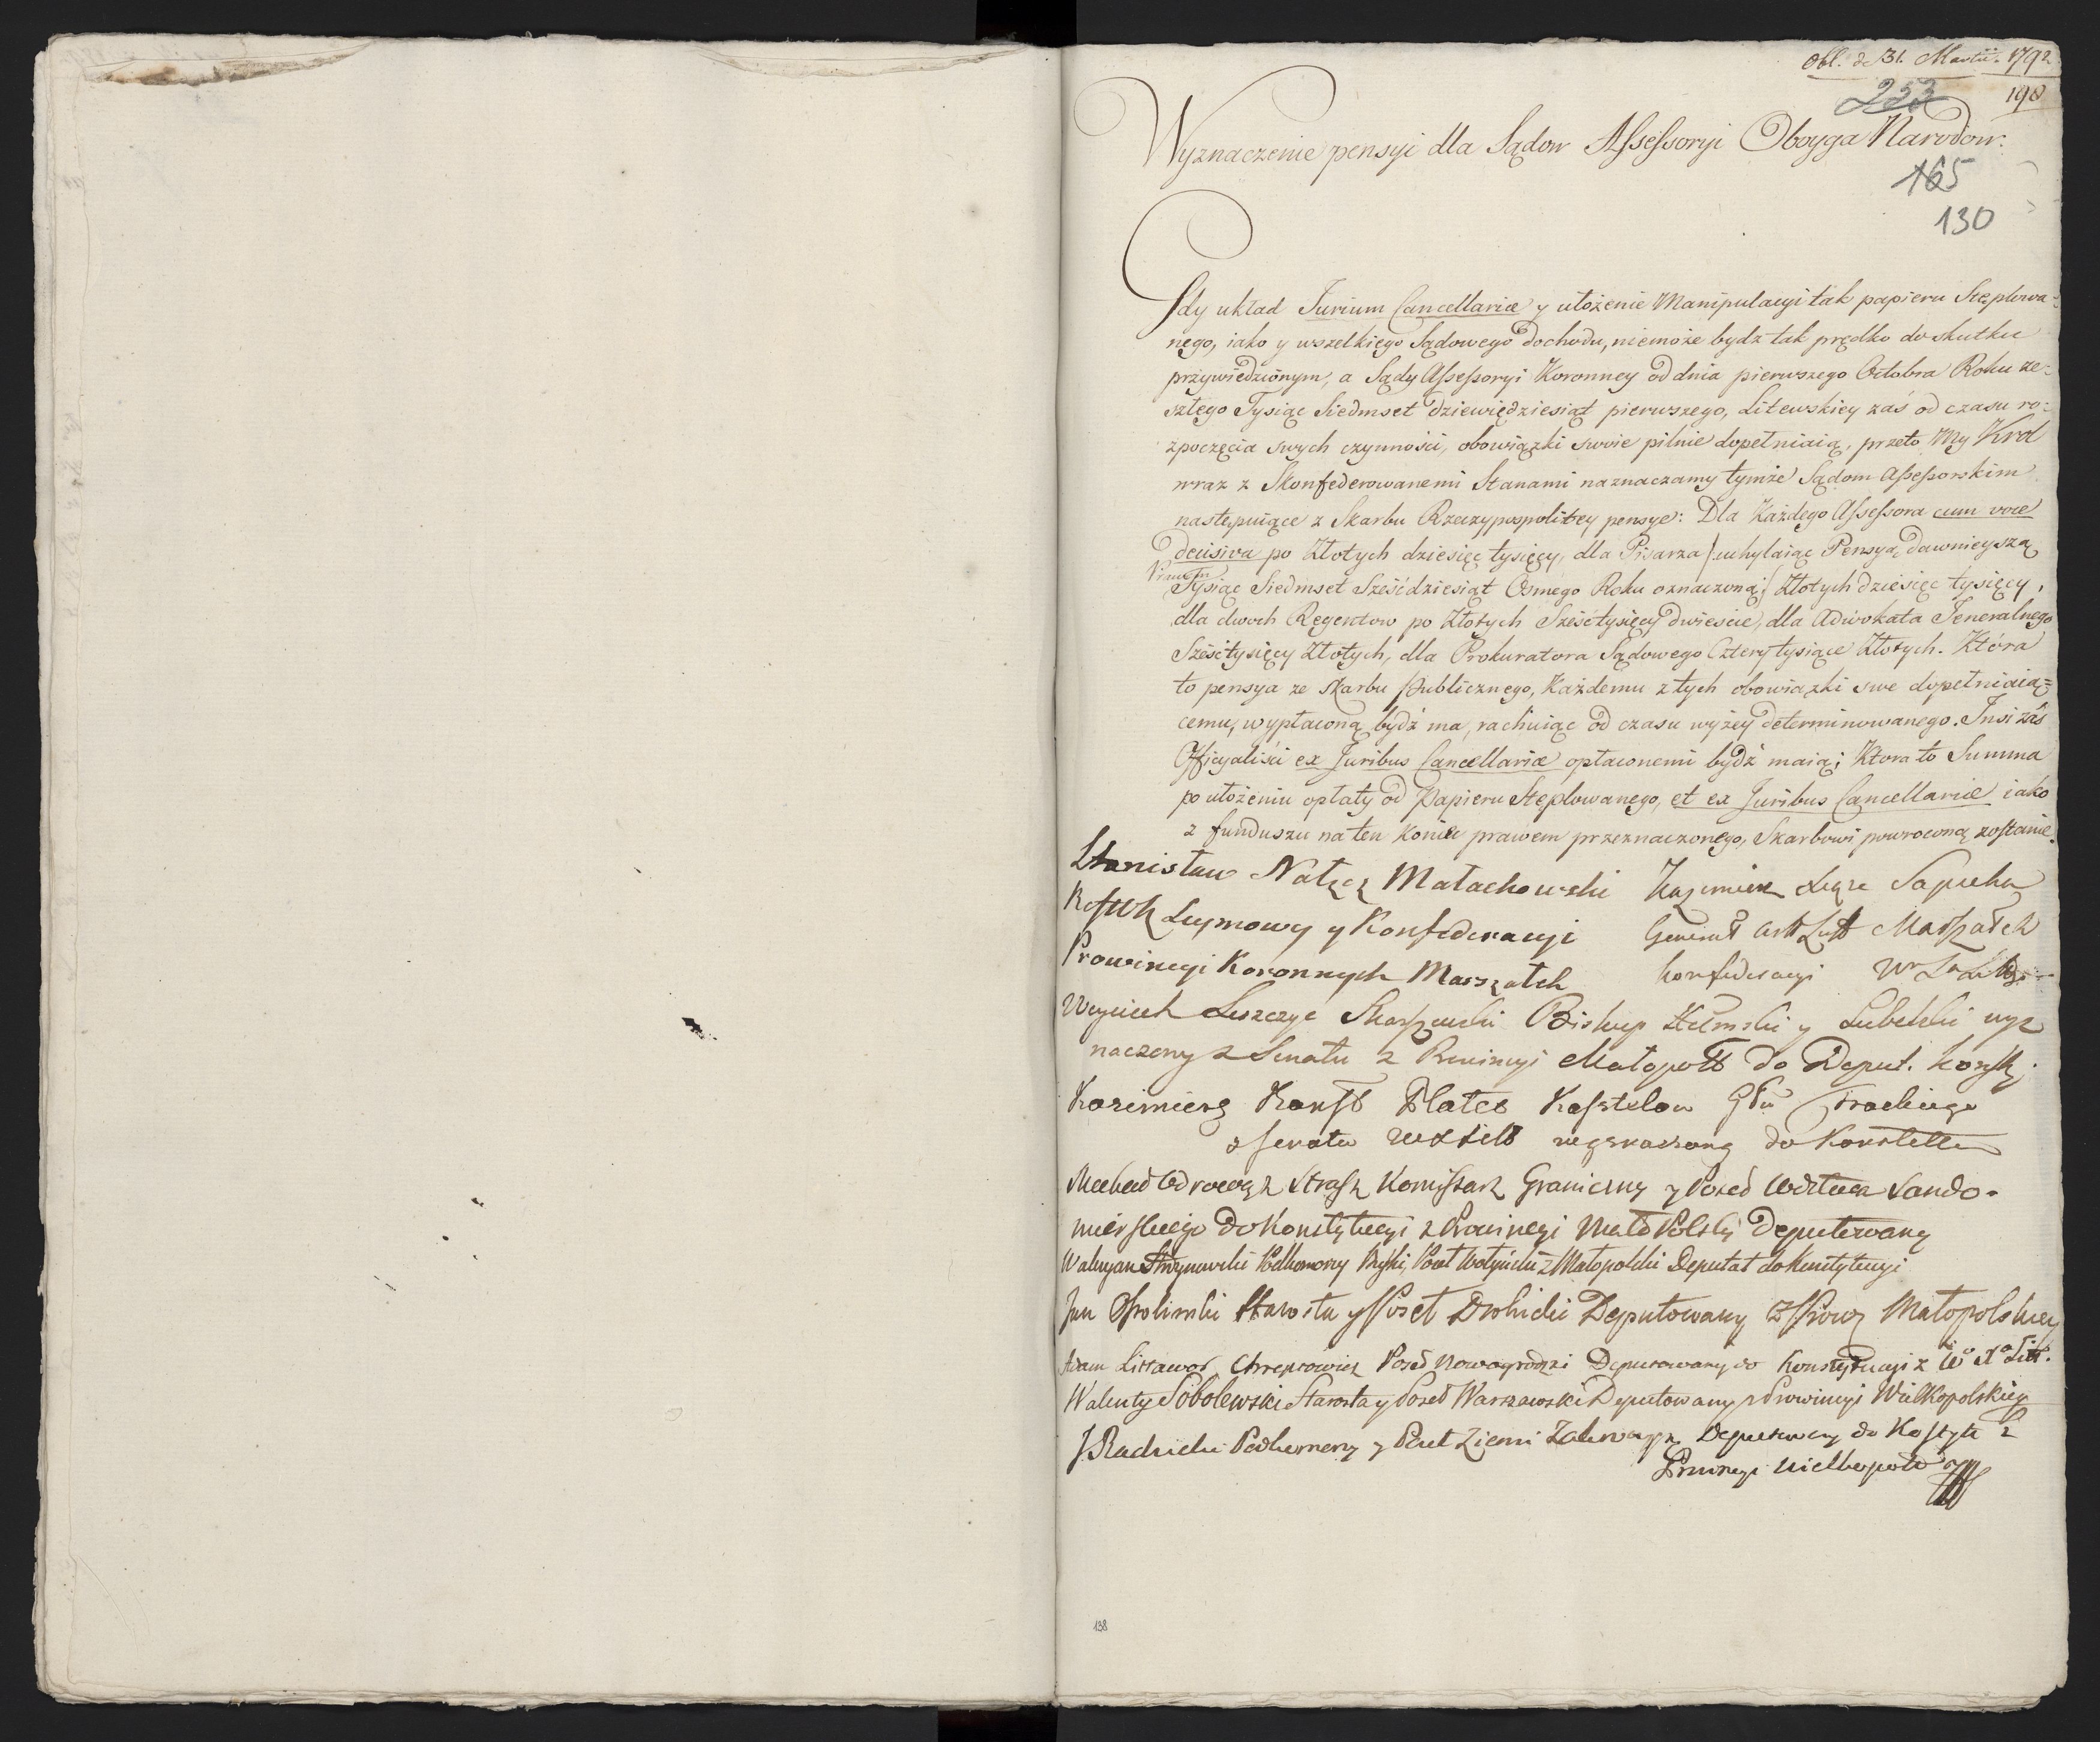 Obl. de 31. Martii. 1792
198
253
Wyznaczenie pensyi dla Sądow Assessoryi Oboyga Narodow.
165
130
Gdy układ Jurium Cancellariæ y ułożenie Manipulacyi tak papieru Stęplowa-
nego, iako y wszelkiego Sądowego dochodu, niemoże bydz tak prędko do skutku
przywiedzionym, a Sądy Assessoryi Koronney od dnia pierwszego Octobra Roku ze-
szłego Tysiąc Siedmset dziewiędziesiąt pierwszego, Litewskiey zaś od czasu ro-
zpoczęcia swych czynności, obowiązki swoie pilnie dopełniaią, przeto My Krol
wraz z Skonfederowanemi Stanami naznaczamy tymże Sądom Assessorskim
następuiące z Skarbu Rzeczypospolitey pensye: Dla Każdego Assessora cum voce
decisiva po Złotych dziesięć tysięcy, dla Pisarza /: uchylaiąc Pensyą dawnieyszą
Prawem
Tysiąc Siedmset Sześćdziesiąt Osmego Roku oznaczoną :/ Złotych dziesięć tysięcy,
dla dwoch Regentow po Złotych Sześć tysięcy dwieście, dla Adwokata Jeneralnego
Sześć tysięcy Złotych, dla Prokuratora Sądowego Cztery tysiące Złotych. Która
to pensya ze skarbu Publicznego, Każdemu z tych obowiązki swe dopełniaią=
cemu, wypłaconą bydź ma, rachuiąc od czasu wyżey determinowanego. Insi zaś
Officyaliści ex Juribus Cancellariæ opłaconemi bydź maią; Ktora to Summa
po ułożeniu opłaty od Papieru Stęplowanego, et ex Juribus Cancellariæ iako
z funduszu na ten koniec prawem przeznaczonego, Skarbowi powroconą zostanie.
Stanisław Nałęcz Małachowski
Kazimierz Xiąże Sapieha
Seymowy y Konfederacyi
Generał Artt Litt Marszałek
Prowincyi Koronnych Marszałek
Konfederacyi
Woyciech Leszczyc Skarszewski Biskup Chełmski y Lubelski wyz
naczony z Senatu z Prowincyi Małopolt do Deput. Konsty.
Kazimierz Konst Plater Kasztelan Głu Trockiego
z senatu WXLitt wyznaczony do Konstitt
Michał Odrowąż Strasz Komissarz Graniczny y Poseł Wdztwa Sando-
mierskiego do Konstytucyi z Prowincyi Mało Polsky Deputowany
Waleryan Stroynowski Podkomorzy Buski, Poseł Wołyński z Małopolski Deputat do Konstytucyi
Jan Starosta y Poseł Deputowany z Prow Małopolskiey
Adam Littawor Chreptowicz Poseł Nowogrodzki Deputowany do Konstytucyi z Wo Xa Litt.
Walenty Sobolewski Starosta y Poseł Warszawski Deputowany z Prowincyi Wielkopolskiey
J Radzicki Podkomorzy y Poseł Ziemi Zakroczym Deputowany do Kostytu z
Prowincyi Wielkopols
138